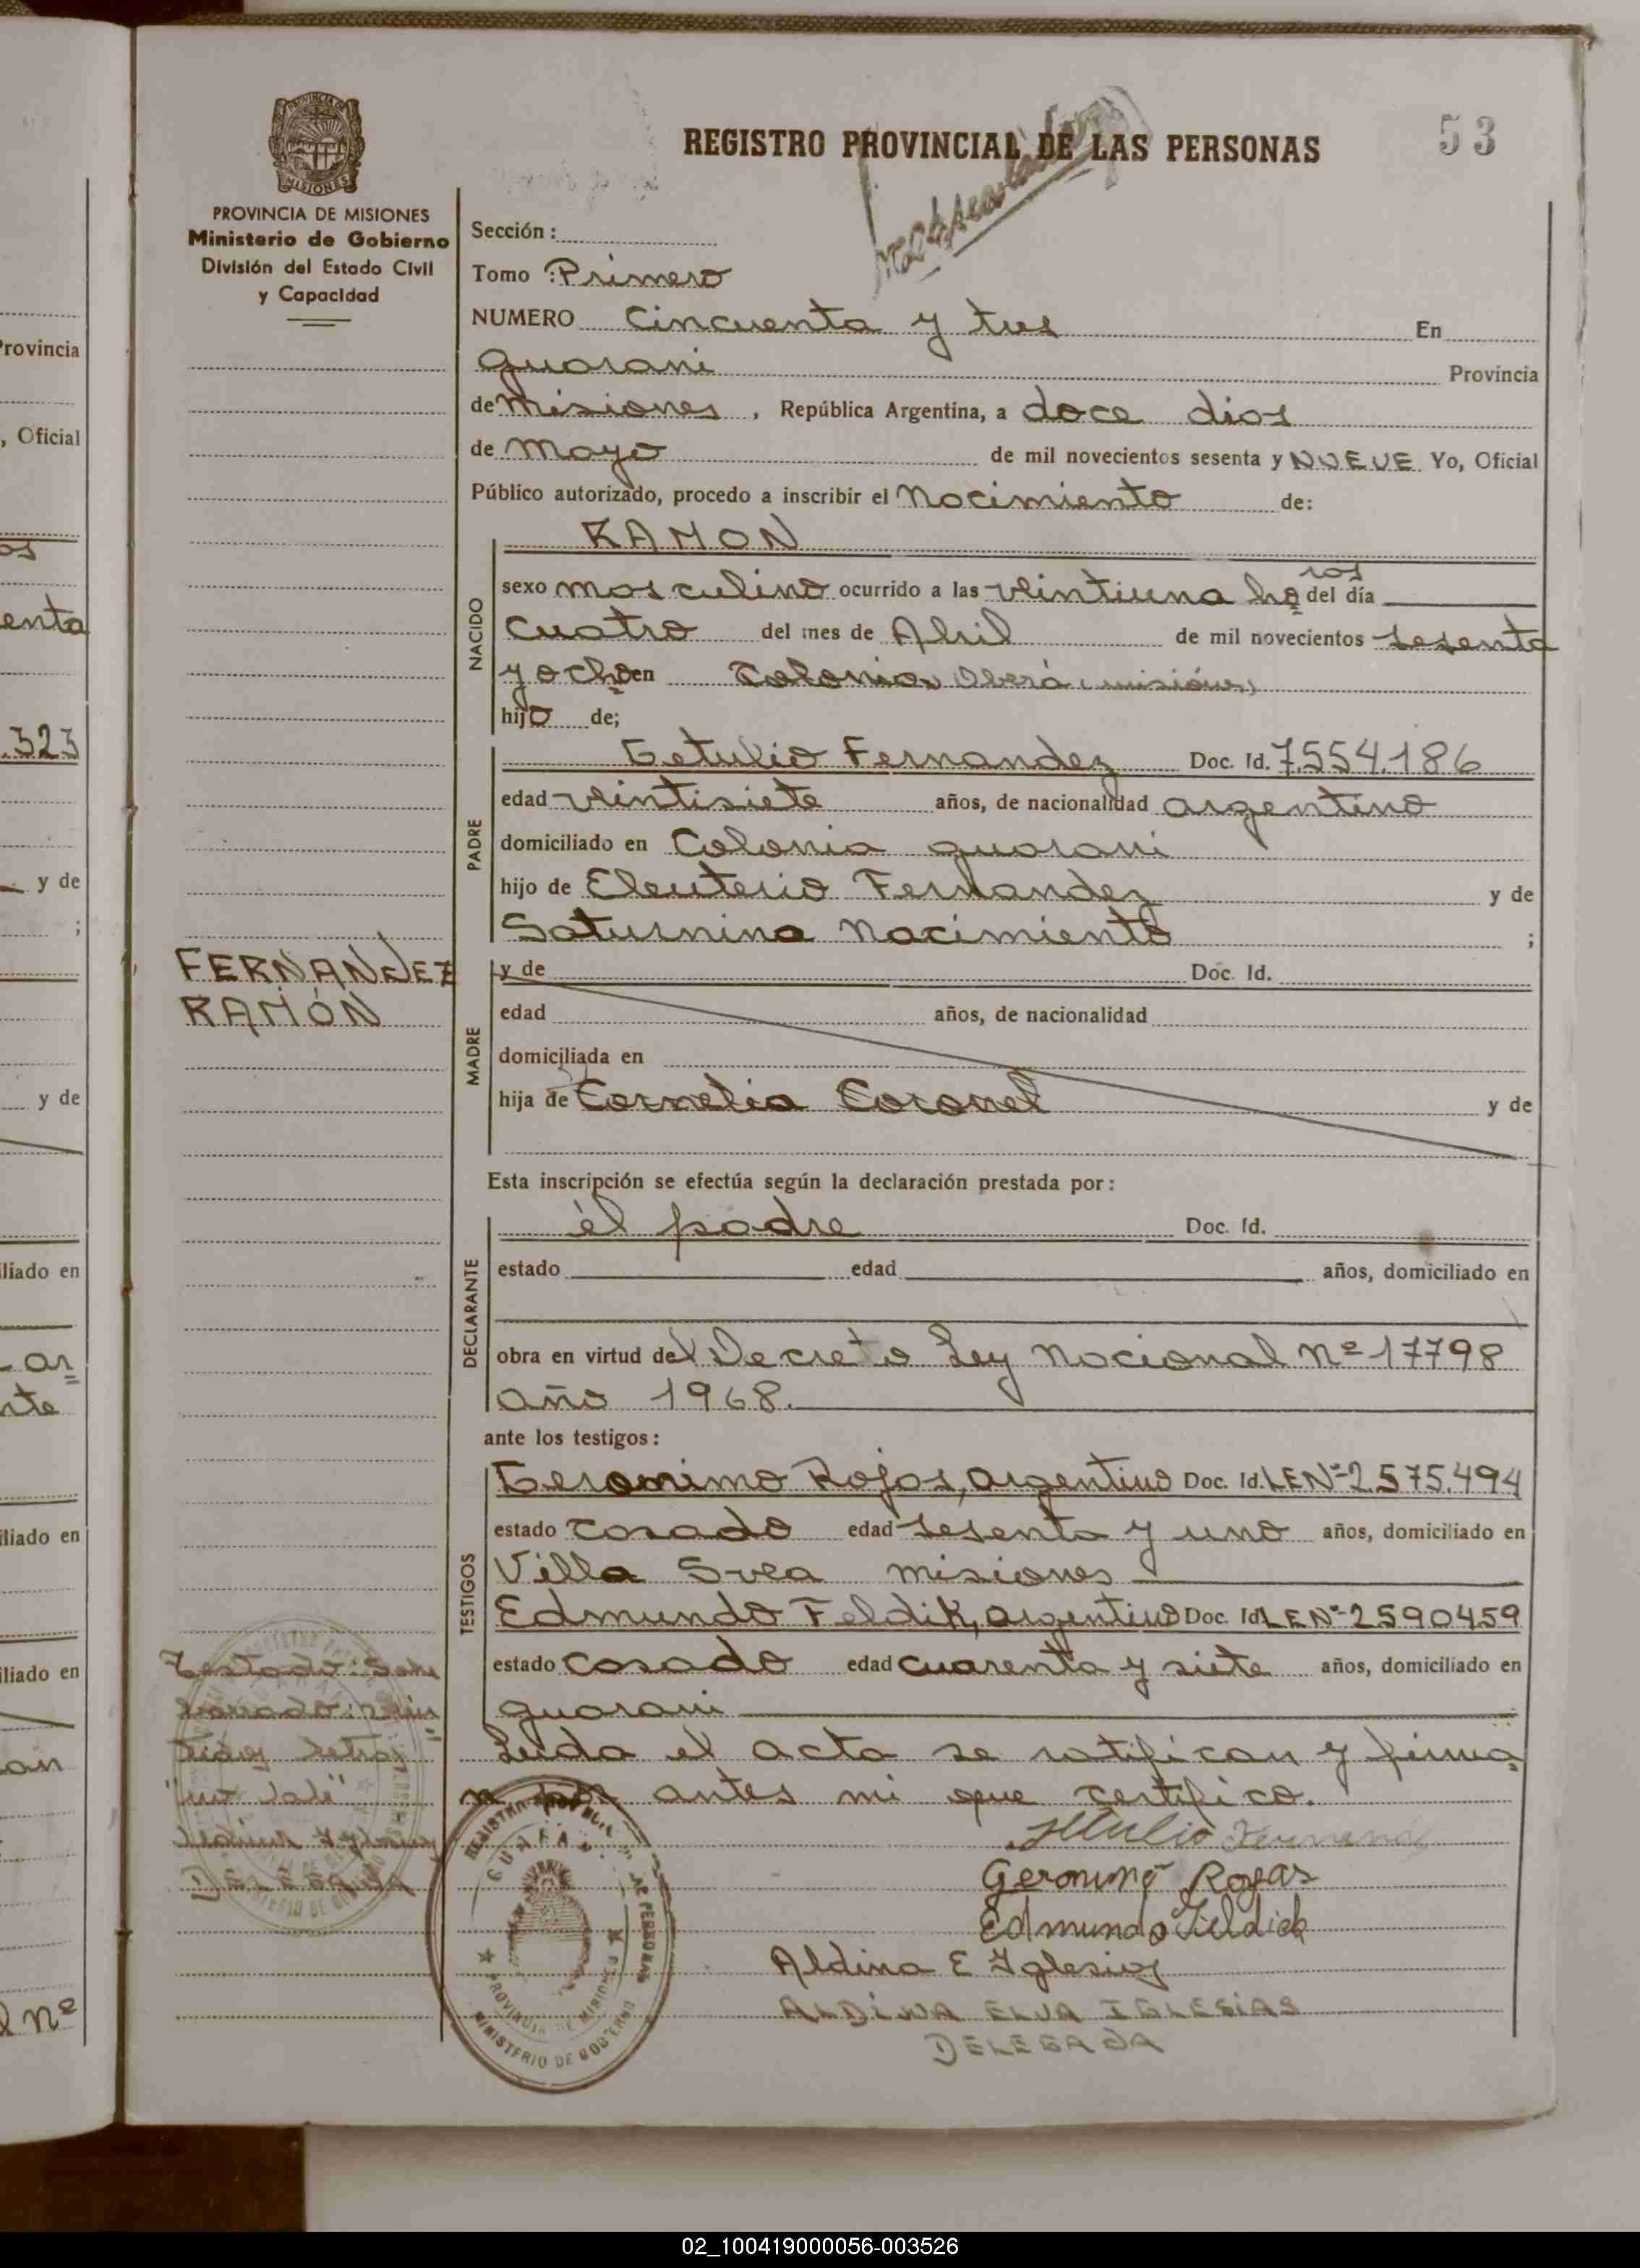 53
REGISTRO PROVINCIAL DE LAS PERSONAS
PROVINCIA DE MISIONES
Ministerio de Gobierno
División del Estado Civil
y Capacidad
Sección :
Tomo : Primero
NUMERO Cincuenta y tres En
guarani Provincia
de Misiones , República Argentina, a doce dias
de Mayo de mil novecientos sesenta y NUEVE Yo, Oficial
Público autorizado, procedo a inscribir el Nacimiento de:
RAMON
NACIDO
ras
sexo masculino ocurrido a las veintiuna ho del día
cuatro del mes de Abril de mil novecientos sesenta
y ocho en Colonia Oberá (misiones)
hijo de;
PADRE
Getulio Fernandez Doc. Id. 7.554.186
edad veintisiete años, de nacionalidad argentino
domiciliado en Colonia guarani
hijo de Eleuterio Fernandez y de
Saturnina Nacimiento ;
FERNANDEZ
RAMÓN
MADRE
y de Doc. Id.
edad años, de nacionalidad
domiciliada en
hija de Cornelia Coronel y de
Esta inscripción se efectúa según la declaración prestada por :
DECLARANTE
él padre Doc. Id.
estado edad años, domiciliado en
obra en virtud del Decreto Ley Nacional Nº 17798
año 1968.
ante los testigos :
TESTIGOS
Geronimo Rojas, argentino Doc. Id. LE Nº 2.575.494
estado casado edad sesenta y uno años, domiciliado en
Villa Svea misiones
Edmundo Feldik, argentino Doc. Id LE Nº 2590459
estado casado edad cuarenta y siete años, domiciliado en
guarani
Leida el acta se ratifican y firma
n antes mi que certifico.
Geronimo Rojas
Edmundo Fieldick
Aldina E Iglesias
ALDINA ELVA IGLESIAS
DELEGADA
MINISTERIO DE GOBIERNO
PROVINCIA DE MISIONES
Provincia
, Oficial
enta
.323
y de
;
y de
liado en
iliado en
iliado en
Nº
02_100419000056-003526